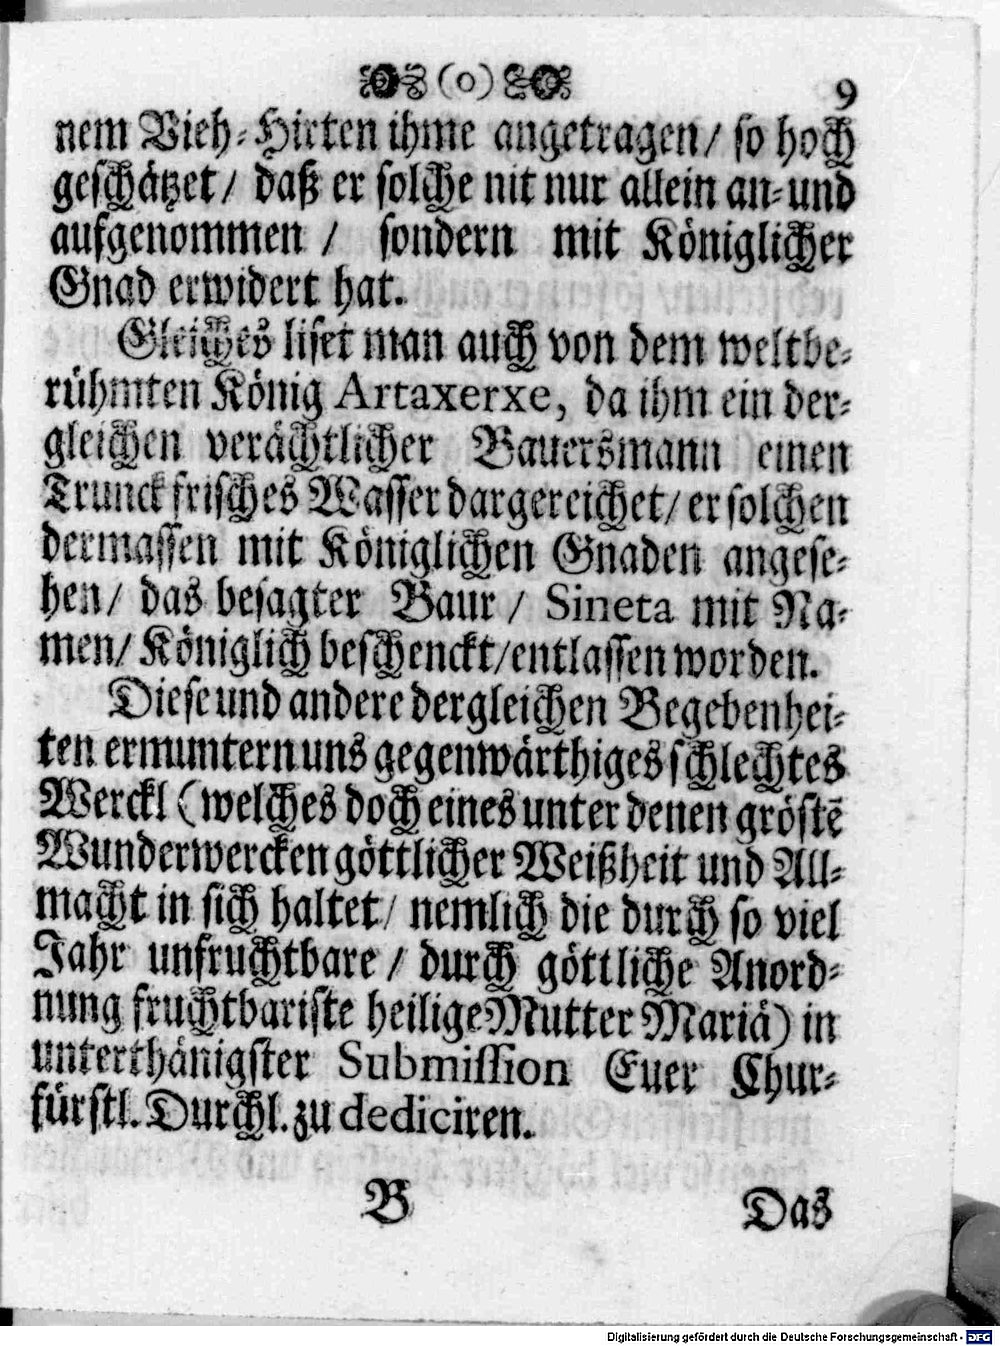 (o) 9
nem Vieh-Hirten ihme angetragen/ so hoch
geschätzet/ daß er solche nit nur allein an-und
aufgenommen / sondern mit Königlicher
Gnad erwidert hat.
Gleiches liset man auch von dem weltbe-
rühmten König Artaxerxe, da ihm ein der-
gleichen verächtlicher Bauersmann einen
Trunck frisches Wasser dargereichet/ er solchen
dermassen mit Königlichen Gnaden angese-
hen/ das besagter Baur / Sineta mit Na-
men/ Königlich beschenckt/entlassen worden.
Diese und andere dergleichen Begebenhei-
ten ermuntern uns gegenwärthiges schlechtes
Werckl (welches doch eines unter denen gröstē
Wunderwercken göttlicher Weißheit und All-
macht in sich haltet/ nemlich die durch so viel
Jahr unfruchtbare / durch göttliche Anord-
nung fruchtbariste heilige Mutter Mariä) in
unterthänigster Submission Euer Chur-
fürstl. Durchl. zu dediciren.
B Das
Digitalisierung gefördert durch die Deutsche Forschungsgemeinschaft - DFG